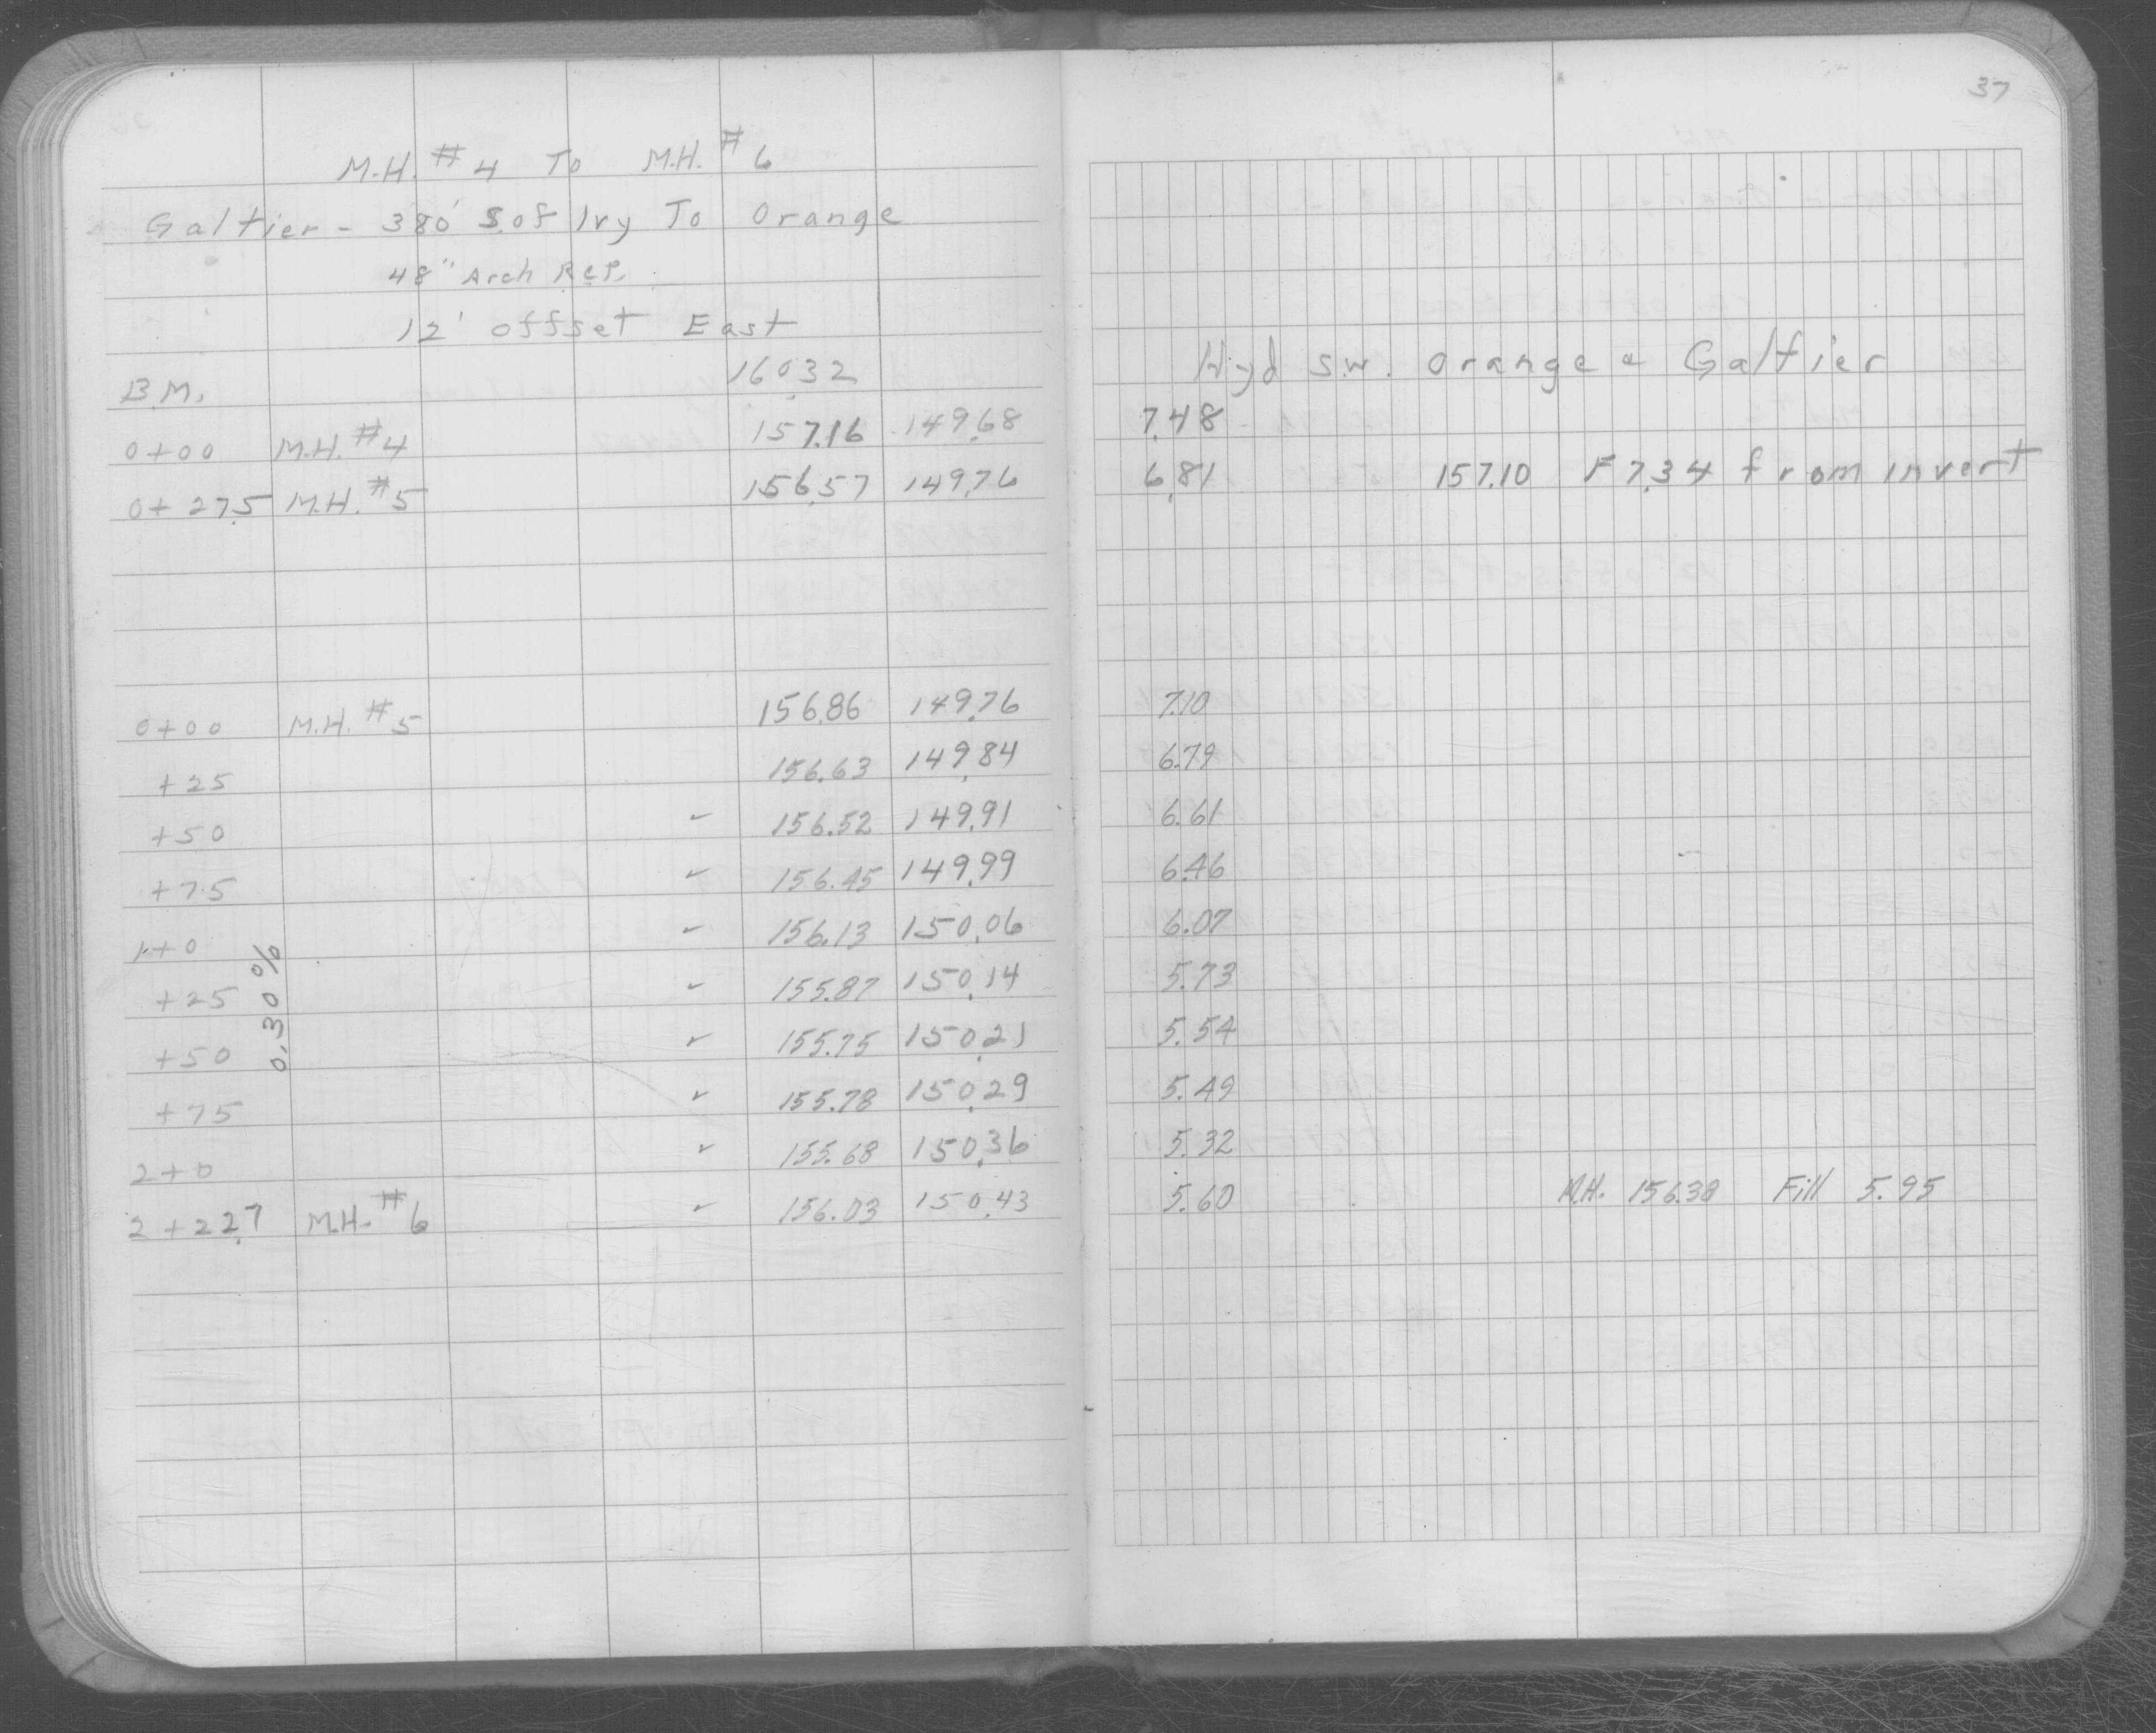 37
M.H. #4 To M.H. #6
Galtier - 380' S. of Ivy To Orange
48" Arch R.C.P.
12' offset East
B.M. 160.32 Hyd S.W. Orange & Galtier
0+00 M.H. #4 157.16 149.68 7.48
0+27.5 M.H. #5 156.57 149.76 6.81 157.10 F 7.34 from invert
0+00 M.H. #5 156.86 149.76 7.10
+25 156.63 149.84 6.79
+50 ✓ 156.52 149.91 6.61
+75 ✓ 156.45 149.99 6.46
1+0 ✓ 156.13 150.06 6.07
0.30%
+25 ✓ 155.87 150.14 5.73
+50 ✓ 155.75 150.21 5.54
+75 ✓ 155.78 150.29 5.49
2+0 ✓ 155.68 150.36 5.32
2+22.7 M.H. #6 ✓ 156.03 150.43 5.60 M.H. 156.38 Fill 5.95